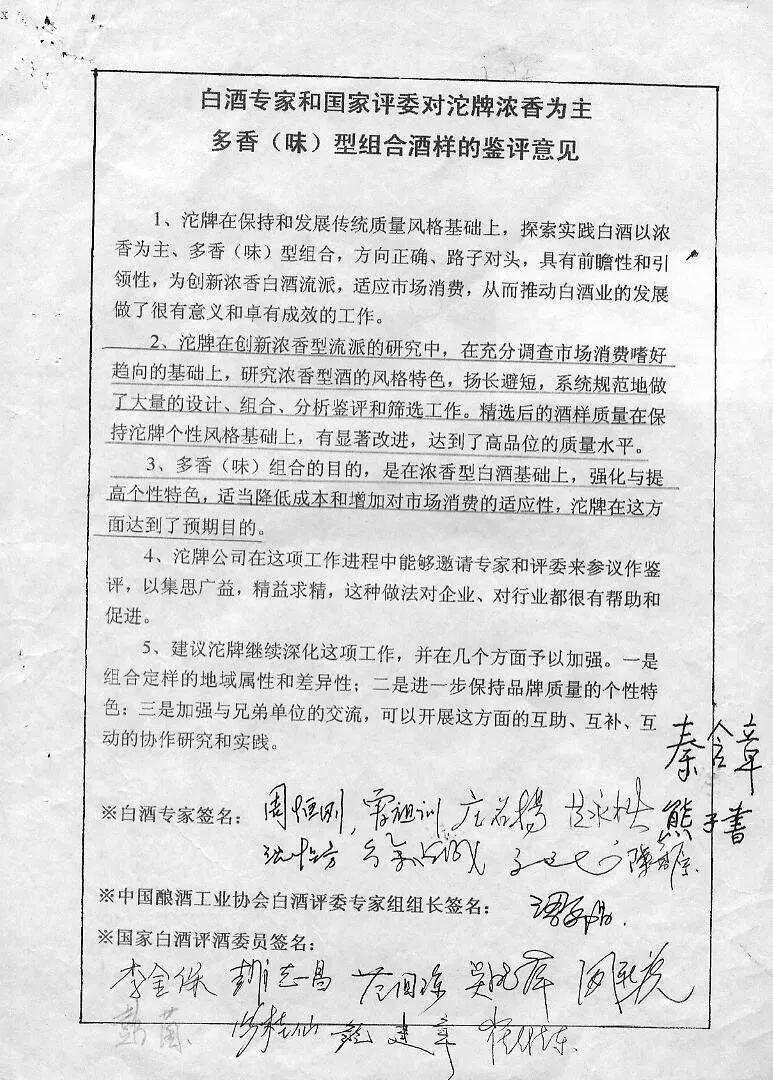 白酒专家和国家评委对沱牌浓香为主
多香（味）型组合酒样的鉴评意见
1、沱牌在保持和发展传统质量风格基础上，探索实践白酒以浓
香为主、多香（味）型组合，方向正确、路子对头，具有前瞻性和引
领性，为创新浓香白酒流派，适应市场消费，从而推动白酒业的发展
做了很有意义和卓有成效的工作。
2、沱牌在创新浓香型流派的研究中，在充分调查市场消费嗜好
趋向的基础上，研究浓香型酒的风格特色，扬长避短，系统规范地做
了大量的设计、组合、分析鉴评和筛选工作。精选后的酒样质量在保
持沱牌个性风格基础上，有显著改进，达到了高品位的质量水平。
3、多香（味）组合的目的，是在浓香型白酒基础上，强化与提
高个性特色，适当降低成本和增加对市场消费的适应性，沱牌在这方
面达到了预期目的。
4、沱牌公司在这项工作进程中能够邀请专家和评委来参议作鉴
评，以集思广益，精益求精，这种做法对企业、对行业都很有帮助和
促进。
5、建议沱牌继续深化这项工作，并在几个方面予以加强。一是
组合定样的地域属性和差异性；二是进一步保持品牌质量的个性特
色；三是加强与兄弟单位的交流，可以开展这方面的互助、互补、互
动的协作研究和实践。
秦含章
※白酒专家签名：周恒刚 曾祖训 庄名扬 熊子书
沈怡方
※中国酿酒工业协会白酒评委专家组组长签名：
※国家白酒评酒委员签名：
李金保 彭志昌
彭茵 建章